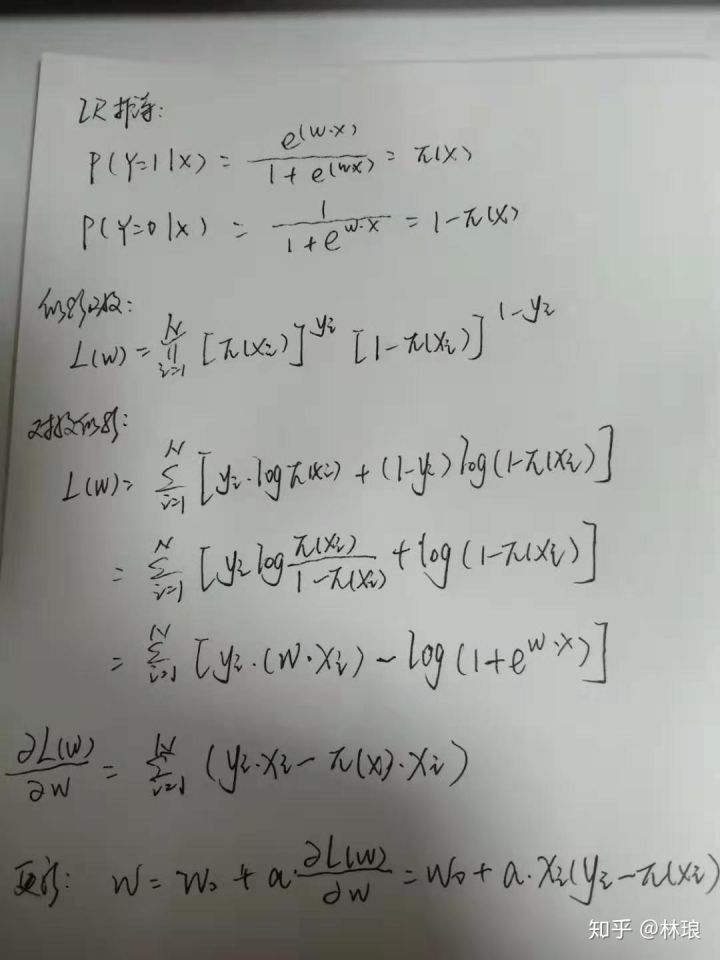 LR推导:
P(Y=1|x) = \frac{e^{(w·x)}}{1+e^{(wx)}} = π(x)
P(Y=0|x) = \frac{1}{1+e^{w·x}} = 1-π(x)
似然函数:
L(w) = \prod_{i=1}^{N} [π(x_i)]^{y_i} [1-π(x_i)]^{1-y_i}
对数似然:
L(w) = \sum_{i=1}^{N} [y_i·logπ(x_i) + (1-y_i)log(1-π(x_i)]
= \sum_{i=1}^{N} [y_i log\frac{π(x_i)}{1-π(x_i)} + log(1-π(x_i)]
= \sum_{i=1}^{N} [y_i·(w·x_i) - log(1+e^{w·x})]
\frac{∂L(w)}{∂w} = \sum_{i=1}^{N} (y_i·x_i - π(x)·x_i)
更新: w = w_0 + a·\frac{∂L(w)}{∂w} = w_0 + a·x_i(y_i-π(x_i)
知乎 @林琅